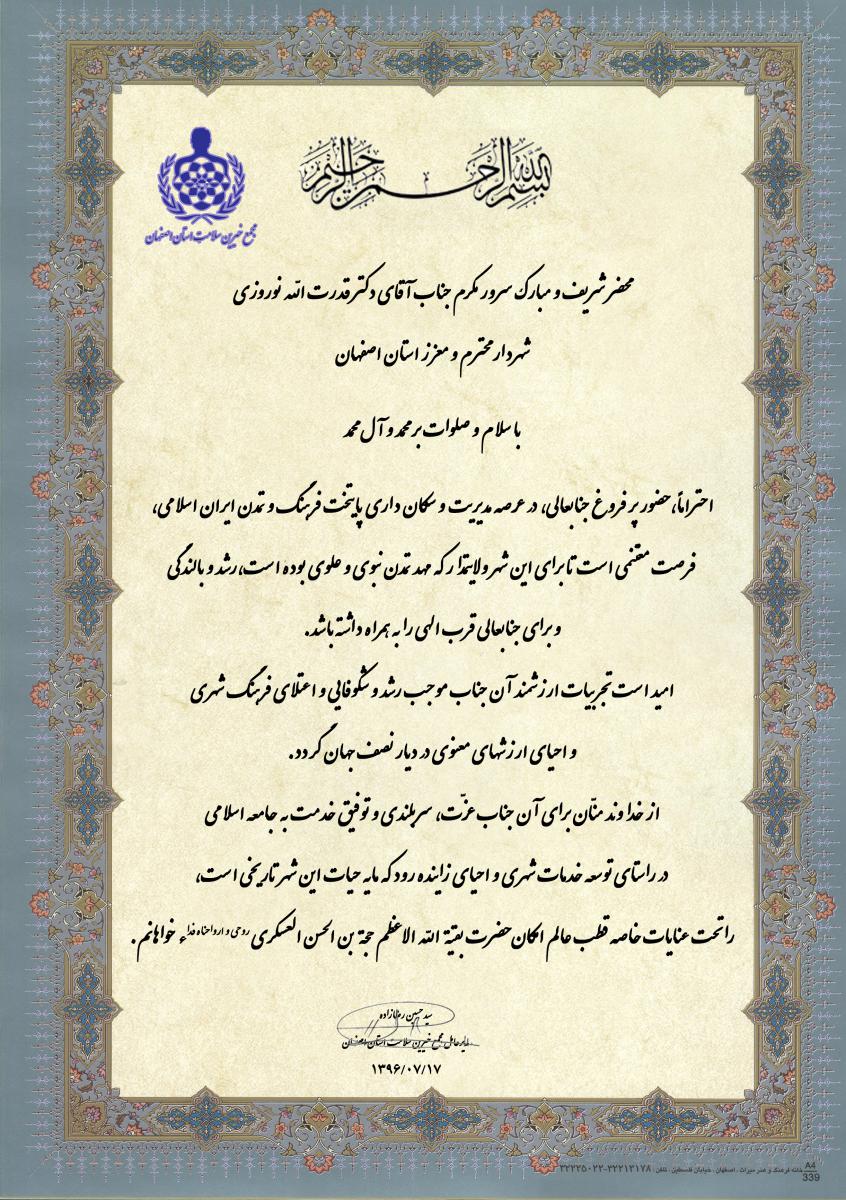 بسم الله الرحمن الرحیم
مجمع خیرین سلامت استان اصفهان
محضر شریف و مبارک سرور مکرم جناب آقای دکتر قدرت اللّه نوروزی
شهردار محترم و معزز استان اصفهان
با سلام و صلوات بر محمد و آل محمد
احتراماً، حضور پر فروغ جنابعالی، در عرصه مدیریت و سکان داری پایتخت فرهنگ و تمدن ایران اسلامی،
فرصت مغتنمی است تا برای این شهر ولایتمدار که مهد تمدن نبوی و علوی بوده است، رشد و بالندگی
و برای جنابعالی قرب الهی را به همراه داشته باشد.
امید است تجربیات ارزشمند آن جناب موجب رشد و شکوفایی و اعتلای فرهنگ شهری
و احیای ارزشهای معنوی در دیار نصف جهان گردد.
از خداوند منّان برای آن جناب عزّت، سربلندی و توفیق خدمت به جامعه اسلامی
در راستای توسعه خدمات شهری و احیای زاینده رود که مایه حیات این شهر تاریخی است،
را تحت عنایات خاصه قطب عالم امکان حضرت بقیة اللّه الاعظم حجة بن الحسن العسکری روحی و ارواحناه فداء خواهانم.
سید حسین رضازاده
مدیرعامل مجمع خیرین سلامت استان اصفهان
۱۳۹۶/۰۷/۱۷
خانه فرهنگ و هنر میراث . اصفهان . خیابان فلسطین . تلفن : ۳۲۲۱۳۱۷۸-۳۲۲۲۵۰۲۲
A4
339